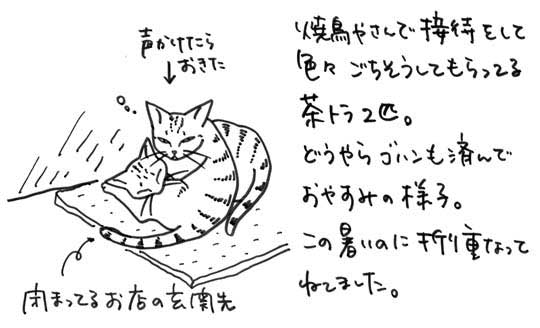 声かけたら
おきた
焼鳥やさんで接待をして
色々ごちそうしてもらってる
茶トラ2匹。
どうやらゴハンも済んで
おやすみの様子。
この暑いのに折り重なって
ねてました。
閉まってるお店の玄関先